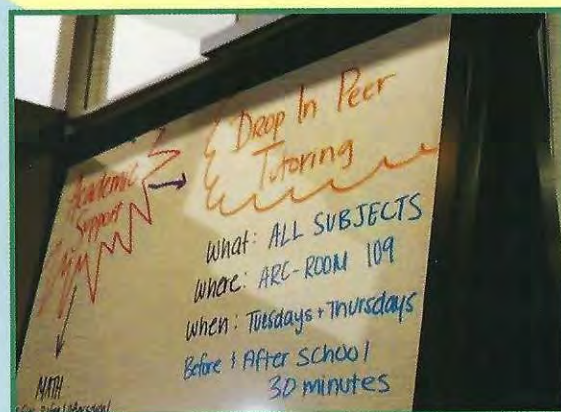 Academic
Support
Drop In Peer
Tutoring
What: ALL SUBJECTS
Where: ARC-ROOM 109
When: Tuesdays + Thursdays
Before & After School
30 minutes
MATH